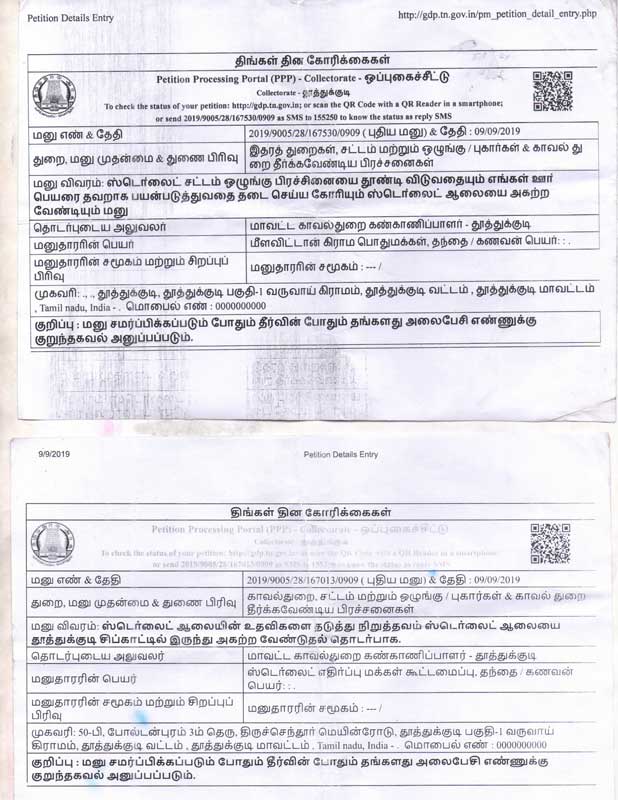 Petition Details Entry
http://gdp.tn.gov.in/pm_petition_detail_entry.php
திங்கள் தின கோரிக்கைகள்
Petition Processing Portal (PPP) - Collectorate - ஒப்புகைச்சீட்டு
Collectorate - தூத்துக்குடி
To check the status of your petition: http://gdp.tn.gov.in; or scan the QR Code with a QR Reader in a smartphone;
or send 2019/9005/28/167530/0909 as SMS to 155250 to know the status as reply SMS
மனு எண் & தேதி 2019/9005/28/167530/0909 ( புதிய மனு) & தேதி : 09/09/2019
துறை, மனு முதன்மை & துணை பிரிவு இதரத் துறைகள், சட்டம் மற்றும் ஒழுங்கு / புகார்கள் & காவல் து
றை தீர்க்கவேண்டிய பிரச்சனைகள்
மனு விவரம்: ஸ்டெர்லைட் சட்டம் ஒழுங்கு பிரச்சினையை தூண்டி விடுவதையும் எங்கள் ஊர்
பெயரை தவறாக பயன்படுத்துவதை தடை செய்ய கோரியும் ஸ்டெர்லைட் ஆலையை அகற்ற
வேண்டியும் மனு
தொடர்புடைய அலுவலர் மாவட்ட காவல்துறை கண்காணிப்பாளர் - தூத்துக்குடி
மனுதாரரின் பெயர் மீளவிட்டான் கிராம பொதுமக்கள், தந்தை / கணவன் பெயர்: : .
மனுதாரரின் சமூகம் மற்றும் சிறப்புப் மனுதாரரின் சமூகம் : --- /
பிரிவு
முகவரி: ., ., தூத்துக்குடி, தூத்துக்குடி பகுதி-1 வருவாய் கிராமம், தூத்துக்குடி வட்டம் , தூத்துக்குடி மாவட்டம்
, Tamil nadu, India - . மொபைல் எண் : 0000000000
குறிப்பு : மனு சமர்ப்பிக்கப்படும் போதும் தீர்வின் போதும் தங்களது அலைபேசி எண்ணுக்கு
குறுந்தகவல் அனுப்பப்படும்.
9/9/2019
Petition Details Entry
திங்கள் தின கோரிக்கைகள்
Petition Processing Portal (PPP) - Collectorate - ஒப்புகைச்சீட்டு
Collectorate - தூத்துக்குடி
To check the status of your petition: http://gdp.tn.gov.in; or scan the QR Code with a QR Reader in a smartphone;
or send 2019/9005/28/167013/0909 as SMS to 155250 to know the status as reply SMS
மனு எண் & தேதி 2019/9005/28/167013/0909 ( புதிய மனு) & தேதி : 09/09/2019
துறை, மனு முதன்மை & துணை பிரிவு காவல்துறை, சட்டம் மற்றும் ஒழுங்கு / புகார்கள் & காவல் துறை
தீர்க்கவேண்டிய பிரச்சனைகள்
மனு விவரம்: ஸ்டெர்லைட் ஆலையின் உதவிகளை நடுத்து நிறுத்தவம் ஸ்டெர்லைட் ஆலையை
தூத்துக்குடி சிப்காட்டில் இருந்து அகற்ற வேண்டுதல் தொடர்பாக.
தொடர்புடைய அலுவலர் மாவட்ட காவல்துறை கண்காணிப்பாளர் - தூத்துக்குடி
மனுதாரரின் பெயர் ஸ்டெர்லைட் எதிர்ப்பு மக்கள் கூட்டமைப்பு, தந்தை / கணவன்
பெயர்: : .
மனுதாரரின் சமூகம் மற்றும் சிறப்புப் மனுதாரரின் சமூகம் : --- /
பிரிவு
முகவரி: 50-பி, போல்டன்புரம் 3ம் தெரு, திருச்செந்தூர் மெயின்ரோடு, தூத்துக்குடி பகுதி-1 வருவாய்
கிராமம், தூத்துக்குடி வட்டம் , தூத்துக்குடி மாவட்டம் , Tamil nadu, India - . மொபைல் எண் : 0000000000
குறிப்பு : மனு சமர்ப்பிக்கப்படும் போதும் தீர்வின் போதும் தங்களது அலைபேசி எண்ணுக்கு
குறுந்தகவல் அனுப்பப்படும்.